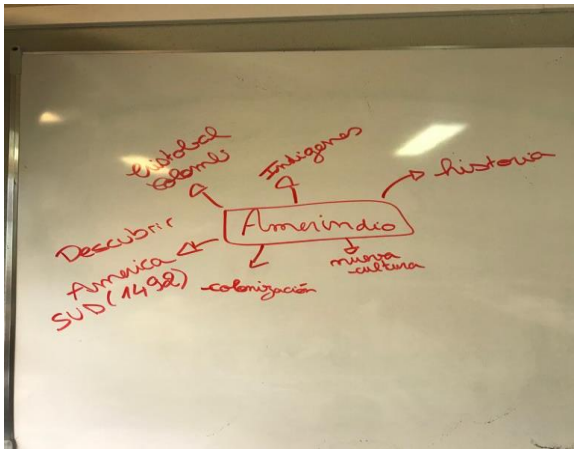 Cristobal
Colomb
Indigenes
historia
Amerindio
Descubrir
America
SUD (1492)
colonización
nueva
cultura